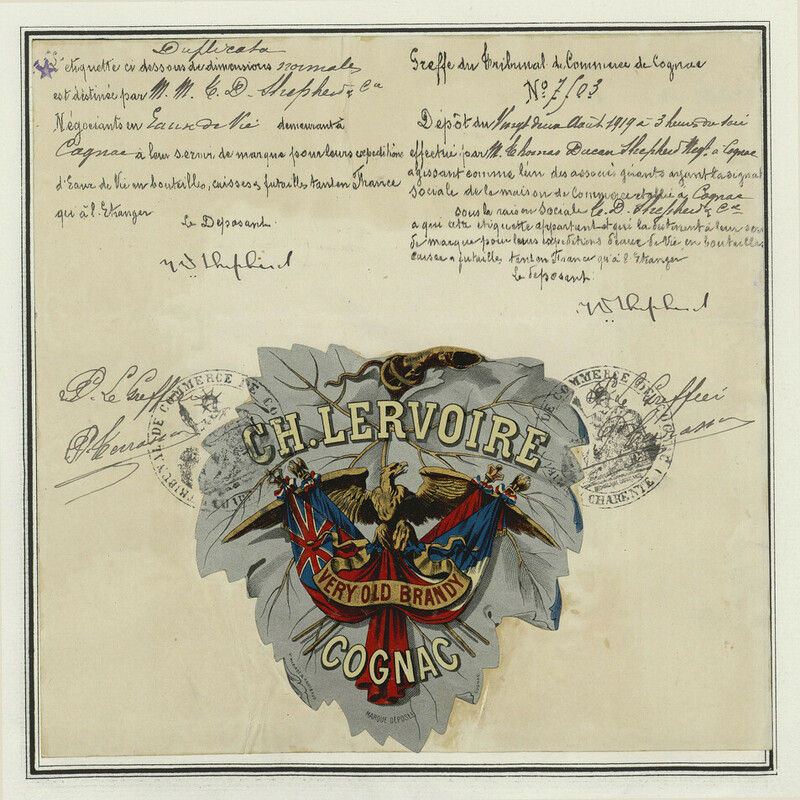 Duplicata
L'étiquette ci dessous de dimensions normales
est destinée par M. M. T. D. Shepherd & Cie
Négociants en Eaux de Vie demeurant à
Cognac à leur servir de marque pour leurs expéditions
d'Eaux de Vie en bouteilles, caisses & futailles tant en France
qu'à l'Etranger
Le Déposant.
Greffe du Tribunal de Commerce de Cognac
No 7503
Dépôt du Vingt deux Août 1919 à 3 heures du soir
effectué par M. Thomas Ducan Shepherd Negt. à Cognac
agissant comme l'un des associés gérants ayant la signat
sociale de la maison de Commerce établie à Cognac
sous la raison Sociale T. D. Shepherd & Cie
a qui cette étiquette appartient et qui la destinent à leur ser
de marque pour leurs expéditions d'eaux de Vie, en bouteilles
caisses & futailles tant en France qu'à l'Etranger
Le déposant.
P. Le Greffier
Le Greffier
TRIBUNAL DE COMMERCE DE CO
DE COMMERCE DE COGNAC
CHARENTE
CH. LERVOIRE
VERY OLD BRANDY
COGNAC
MARQUE DÉPOSÉE